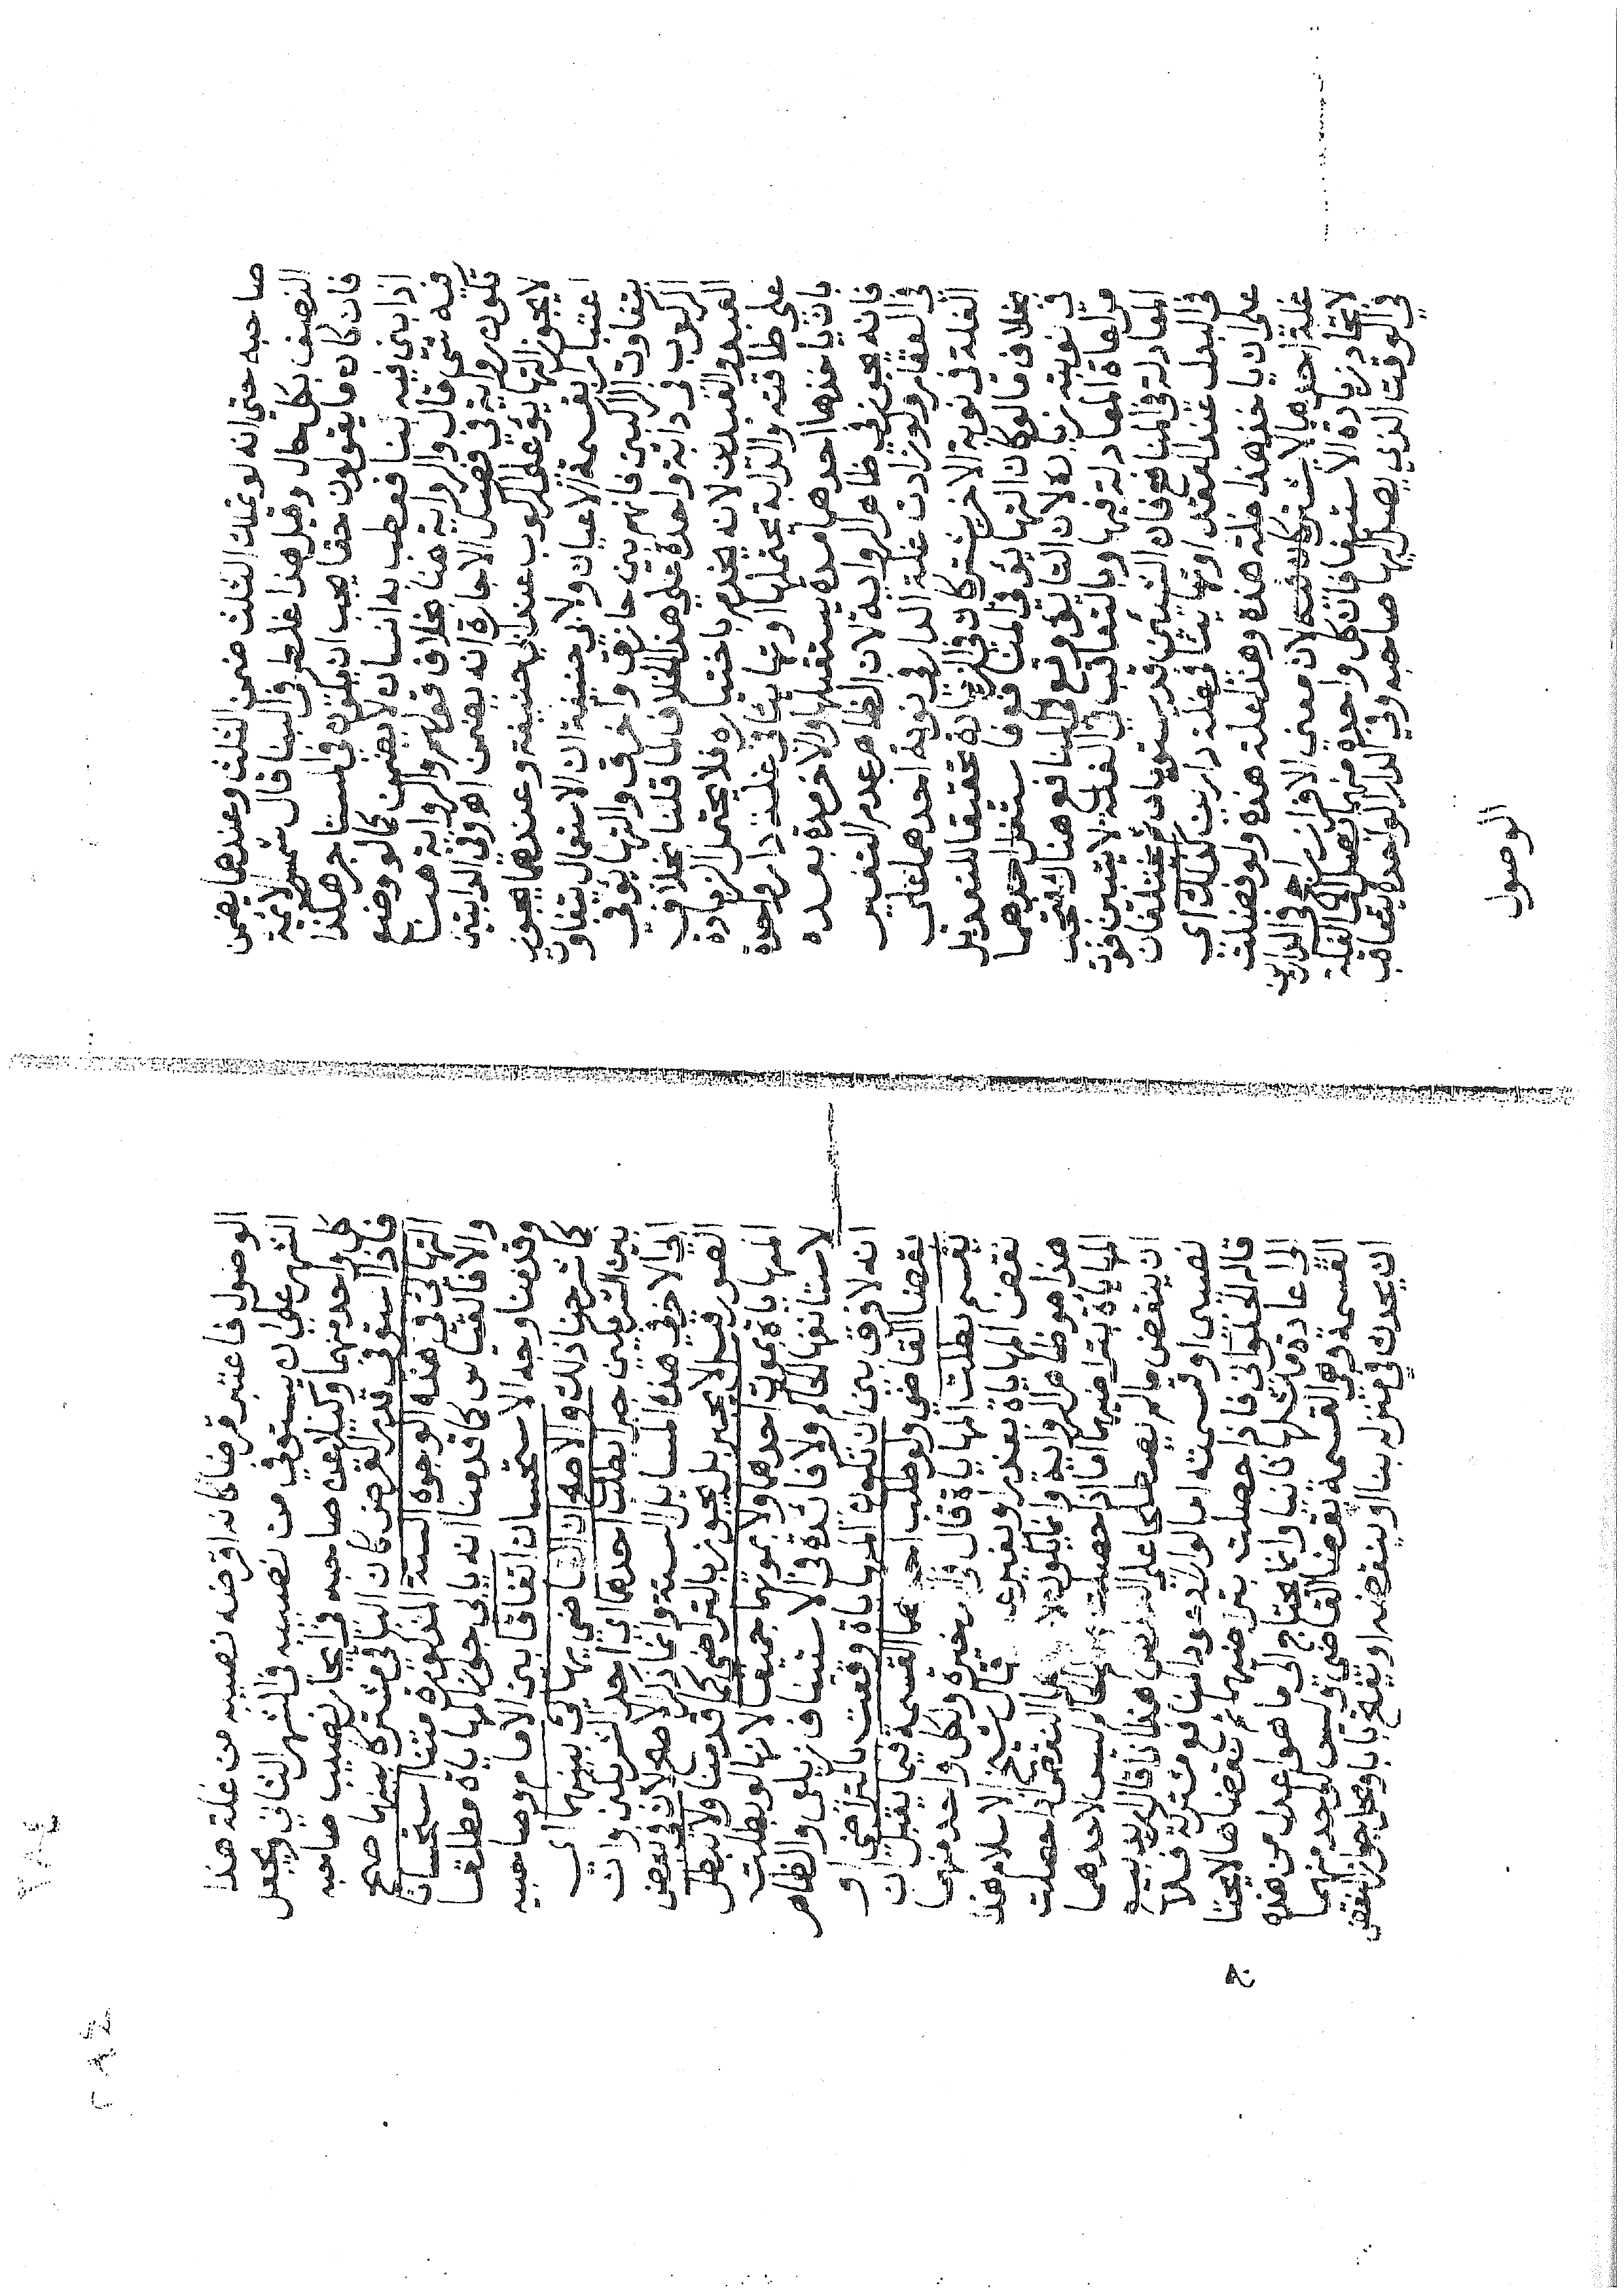 صاحبه حتى انه لو عملت الثلث ضمن الثلث وعندهما يضمن
النصف بكل حال وقيل هذا غلط وفى البنا قال شمس الائمة
فان كان ما يقولون حقا يجب ان يكون في المستاجر هكذا
اذا بنى فيه بنا فعطب به انسان لا يضمن كما لو وضع
فيه شى قال والرواية هنا بخلاف قولهم والرواية هنا
تكون رواية في فصل الاجارة انه يضمن اهـ وفى الدابتين
لا يجوز التهايؤ على الركوب عند ابى حنيفة وعندهما يجوز
اعتبارا بقسمة الاعيان ولابى حنيفة ان الاستعمال يتفاوت
بتفاوت الراكبين فانهم بين حاذق واخرق والتهايؤ في
الركوب في دابة واحدة على هذا الخلاف لما قلنا بخلاف
العبد والعبدين لانه يخدم باختياره فلا يحتمل الزيادة
على طاقته والدابة تحتملها او تهايئا في غلة دار واحدة
بان ياخذها احدهما مدة يستقبلها والاخر مدة بعده
فانه يجوز في ظاهر الرواية لان الظاهر عدم التغير
في العقار ولو زادت غلة الدار في نوبة احدهما على
الغلة في نوبة الاخر يشتركان في الزيادة تحقيقا للتعديل
بخلاف ما لو كان التهايؤ في المنافع فاستغل احدهما
في نوبته زيادة لان التهايؤ وقع في المنافع هناك فتجب
مراعاة المعادلة فيها وبالتعاقب في الغلة لا يتبين فوت
المعادلة في المنافع فان الشيئين قد يستويان مختلفان
في البدل عند العقد او تهايئا في غلة دارين كذلك اى
على ان ياخذ هذا غلة هذه وهذا غلة هذه ولو فضلت
غلة احدهما لا يشتركان فيه لان معنى الافراز راجح فى الدارين
لاتحاد زيادة الاستيفا فان كل واحد منهما يصل الى الغلة
في الوقت الذي يصل اليها صاحبه وفي الدار الواحدة يتعاقب
الوصول
الوصول فاعتبر قرضا كانه اقرضه نصيبه من غلة هذا
الشهر على ان يستوفي من نصيبه فى الشهر الثانى ويجعل
كل واحد منهما وكيلا عن صاحبه في ايجار نصيب صاحبه
فاذا استوفى قدر القرض كان الباقي مشتركا بينهما صح
التهايؤ في هذه الوجوه الستة المذكورة متنا استحسانا
والا فالقياس كما قدمنا انه يابى جواز المهاياة مطلقا
وقدمنا وجه الاستحسان اتفاقا بين الامام وصاحبيه
كما شرحنا ذلك والاصح ان القاضي يهايئ بينهما اى
بين الشريكين جبرا بطلب احدهما اى احد الشريكين وان
ابى الاخر في هذه المسايل الستة وانما ذكر الاصح لان فى بعض
الصور قيل لا يجبر بل يجوز بالتراضى كما قدمنا ولا تبطل
المهاياة بموت احدهما ولا بموتهما جميعا لانها لو بطلت
لاستانفها الحاكم ولا فائدة فى الاستئناف زيلعى والظاهر
انه لا فرق بين ان تكون المهاياة وقعت بالتراضى او
بقضا القاضى ولو طلب احدهما القسمة فيما يقبل ان
يقسم بطلت المهاياة قال في الذخيرة ولكل واحد منهما
نقض المهاياة بعذر او بغير عذر قال شيخ الاسلام هذا
هذا هو ظاهر الرواية وانما يكون لاحدهما النقض اذا حصلت
المهاياة بتراضيهما اما اذا حصلت بالحاكم ليس لاحدهما
ان ينقض مالم يصطلحا على النقض هذا اذا قال اريد بيع
نصيبى او قسمته اما لو اراد عود المنافع مشتركة فلا
قاله الحلوانى فاذا حصلت بتراضيهما ثم نقضاها لا يحتاج
الى اعادة مثلها ثانيا وانما يحتاج الى ما هو اعدل من هذه
القسمة وهى القسمة بقضا القاضى وليس لواحد منهما
ان يحدث في منزله بنا او ينقضه او يفتح بابا ومحل جواز النقض